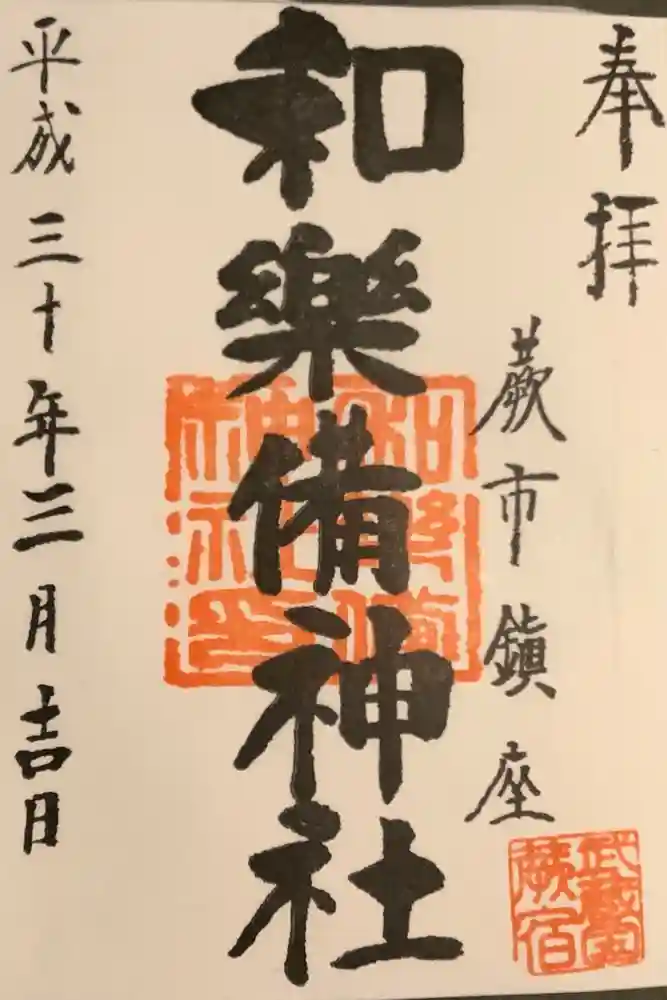 奉拝
蕨市鎮座
和樂備神社
平成三十年三月吉日
和樂備神社印
武蔵國蕨宿